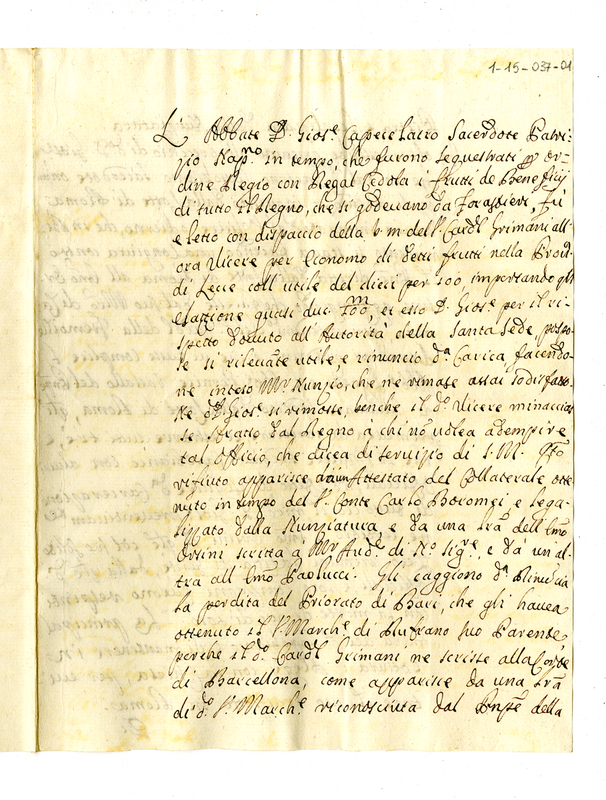 1-15-037-01
L'Abbate D. Gios.e Capece latro Sacerdote Patri-
zio Nap.no in tempo, che furono sequestrati p or-
dine Regio con Regal Cedola i frutti de Beneficij
di tutto il Regno, che si godevano da forastieri, fù
eletto con dispaccio della b. m. del S. Card.l Grimani all'
ora Vicerè per economo di detti frutti nella Prov.a
di Lecce coll'utile del dieci per 100 importando gli
esattione quasi duc. m et esso D. Gios.e per il ri-
spetto dovuto all'Autorità della Santa Sede, pospo-
se sì rilevate utile, e rinunciò d.a Carica facendo-
ne inteso Mr Nunzio, che ne rimase assai sodisfatto.
Ne d. D. Gios.e si rimosse, benche il d.o Vicere minaccias-
se sfratto dal Regno à chi nõ volea adempire
tal officio, che dicea di servizio di S. M. Q.sto
rifiuto apparisce da un Attestato del Collaterale otte-
nuto in tempo del S. Conte Carlo Boromei e lega-
lizzato dalla Nunziatura, e da una lrã dell'Emo
Orsini scritta à Mr Aud.e di N.o Sig.re, e da un al-
tra all'Emo Paolucci. Gli caggionò d.a Rinuncia
la perdita del Priorato di Bari, che gli havea
ottenuto il S. March.e di Rufrano suo Parente,
perche il d.o Card.l Grimani ne scrisse alla Corte
di Barcellona, come apparisce da una lrã
di d.o S. March.e riconosciuta dal della